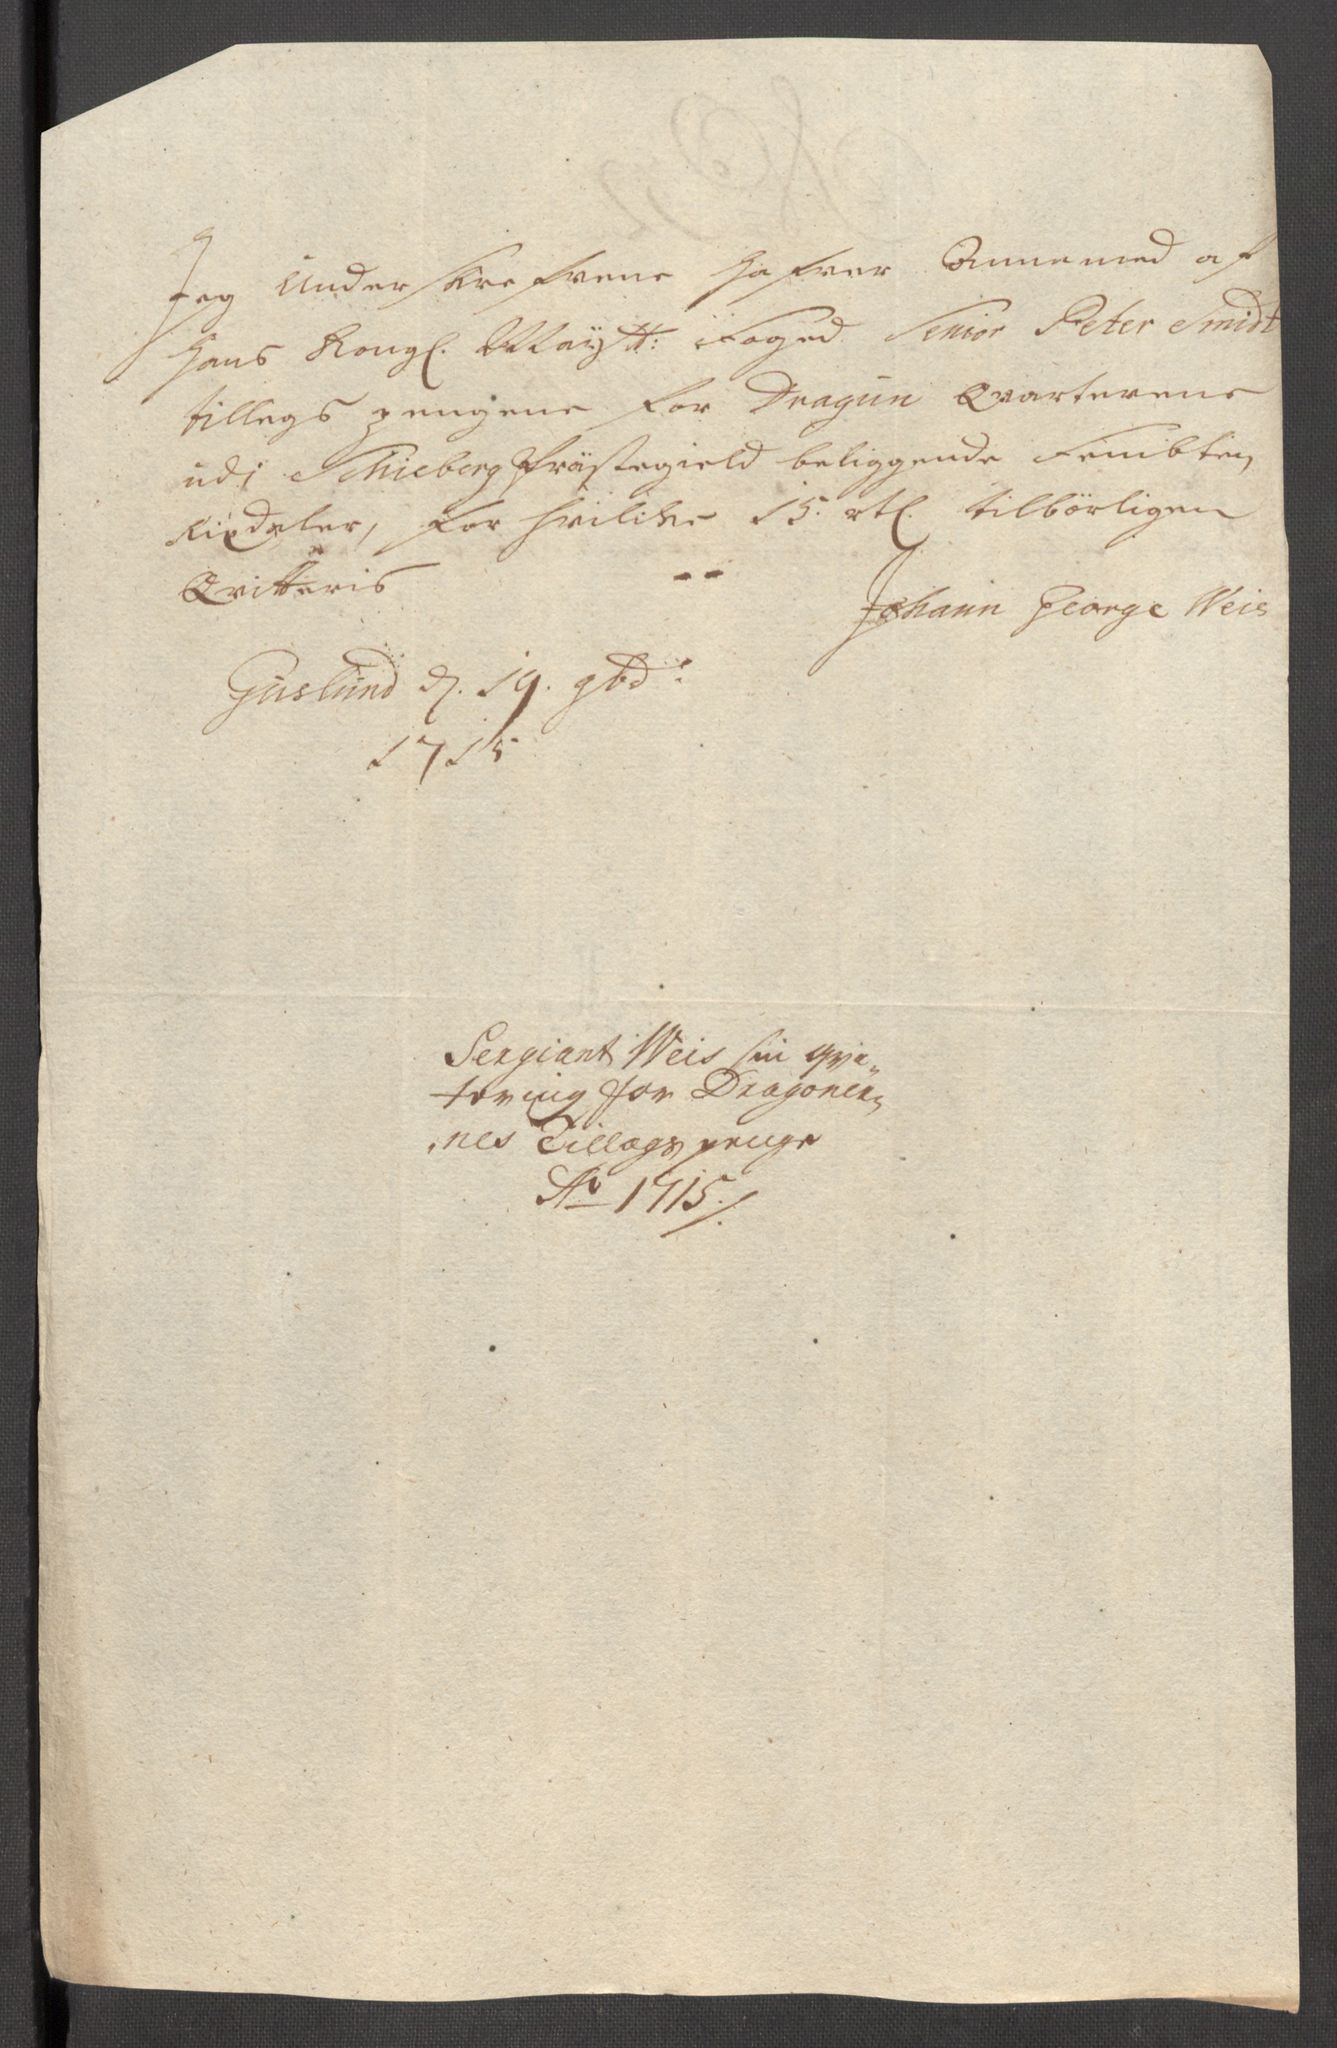 Jeg Underskrefvene hafver Annamed af
hans Kongl. Maÿtt: Foged Senior Peter Smidt
tillegs pengene for Dragun Qvarterene
udi Schieberg Prästegield beliggende Fembten
Rixdaler, for hvilche 15. rtl. tilbörligen
Qvitteris
Johann George Weis
Guslund d. 19. 9bd:
1715
Sergiant Weis sin qvi-
tering for Dragoner-
nes Tillags penge
Ao 1715./.